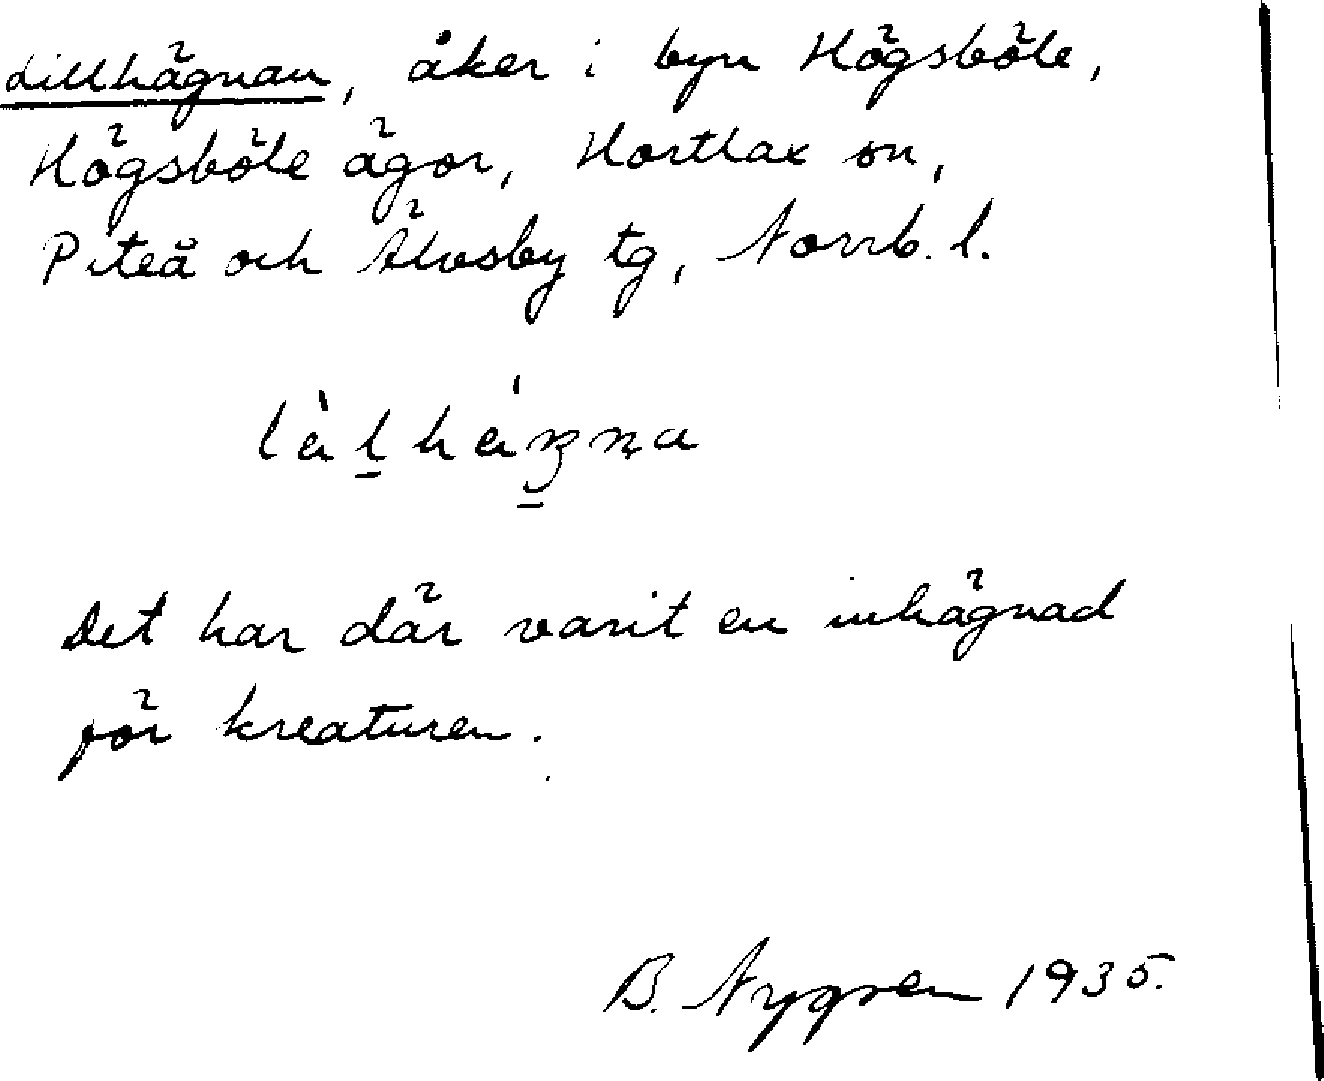 Lillhägnan, åker i byn Högsböle,
Högsböle ägor, Hortlax sn,
Piteå och Älvsby tg, Norrb. l.
Det har där varit en inhägnad
för kreaturen.
B. Nygren 1935.